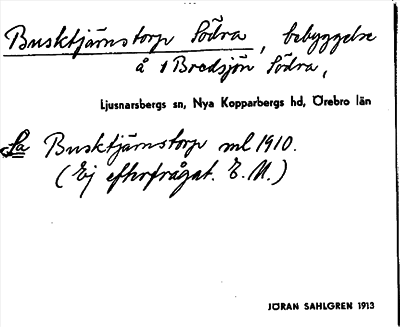 Busktjärnstorp Södra, bebyggelse
å 1 Bredsjön Södra,
Ljusnarsbergs sn, Nya Kopparbergs hd, Örebro län
La Busktjärnstorp ml 1910.
(Ej efterfrågat. E. M.)
JÖRAN SAHLGREN 1913